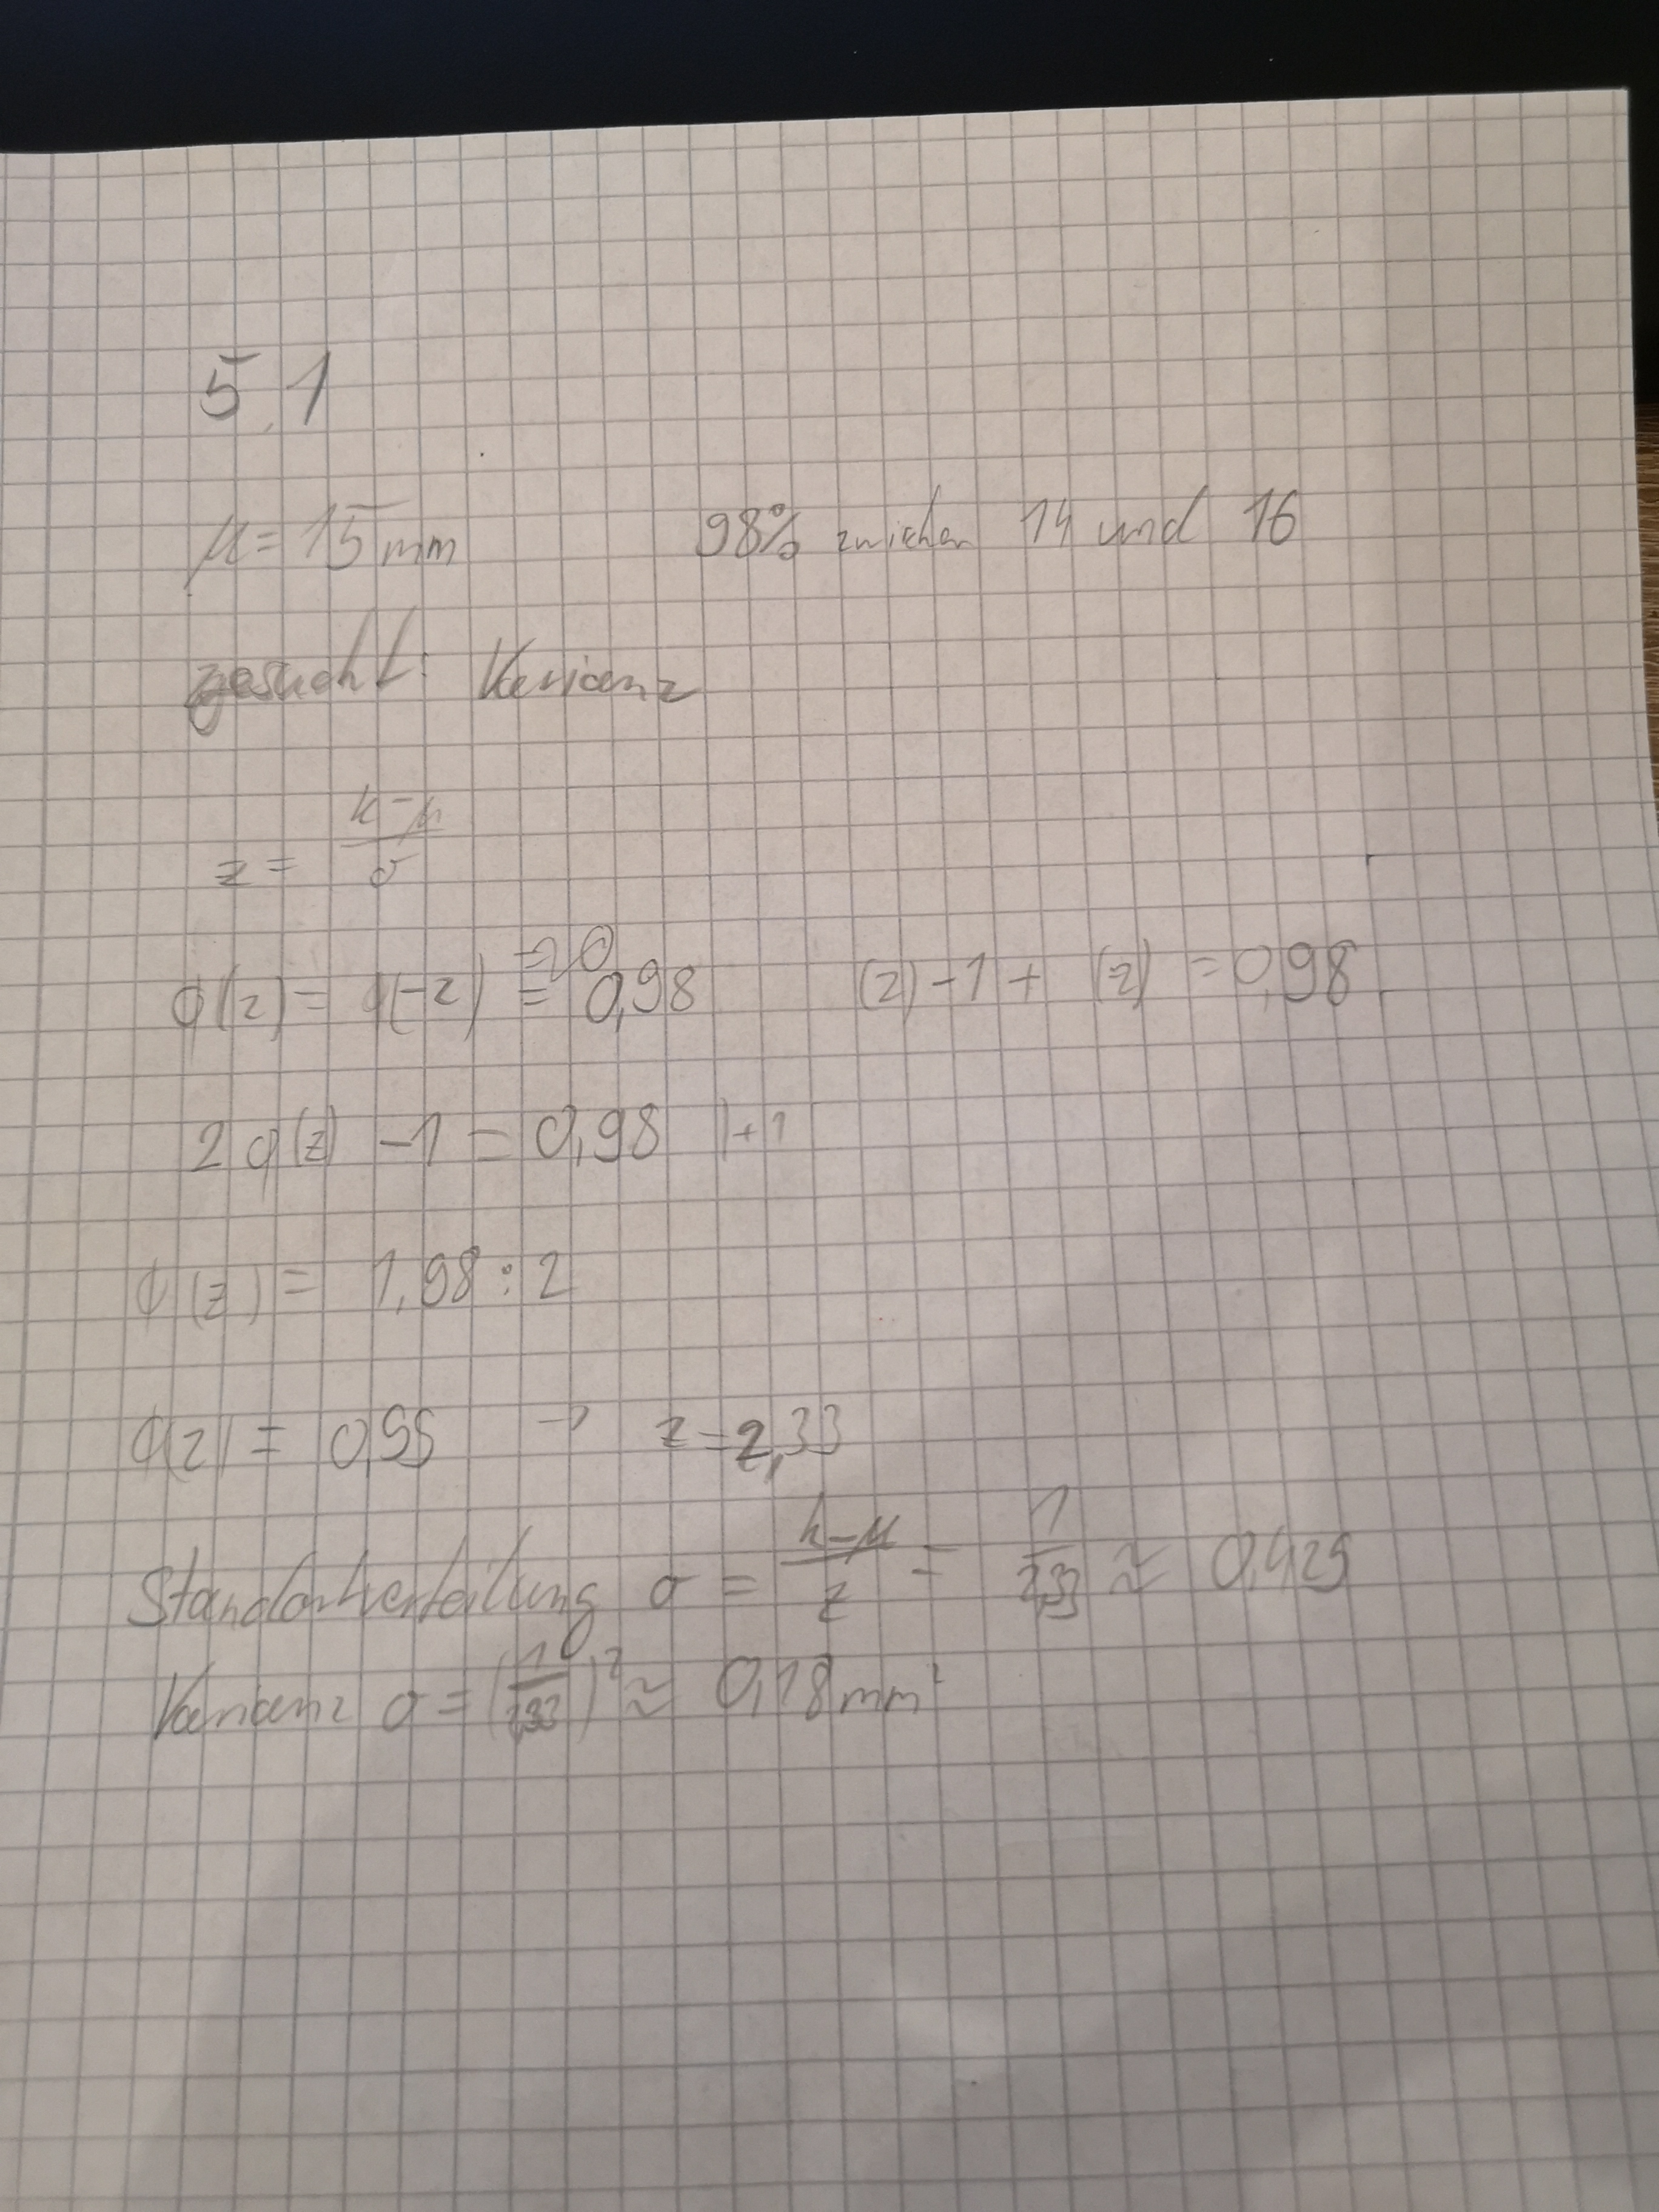 5.1
μ = 15 mm 98% zwischen 14 und 16
gesucht: Varianz
z = (k-μ)/σ
ϕ(z) = ϕ(-z) = 0,98 (z) - 1 + (z) = 0,98
2 ϕ(z) - 1 = 0,98 |+1
ϕ(z) = 1,98 : 2
ϕ(z) = 0,99 → z = 2,33
Standartverteilung σ = (k-μ)/z = 1/2,33 ≈ 0,429
Varianz σ = (1/2,33)² ≈ 0,18 mm²